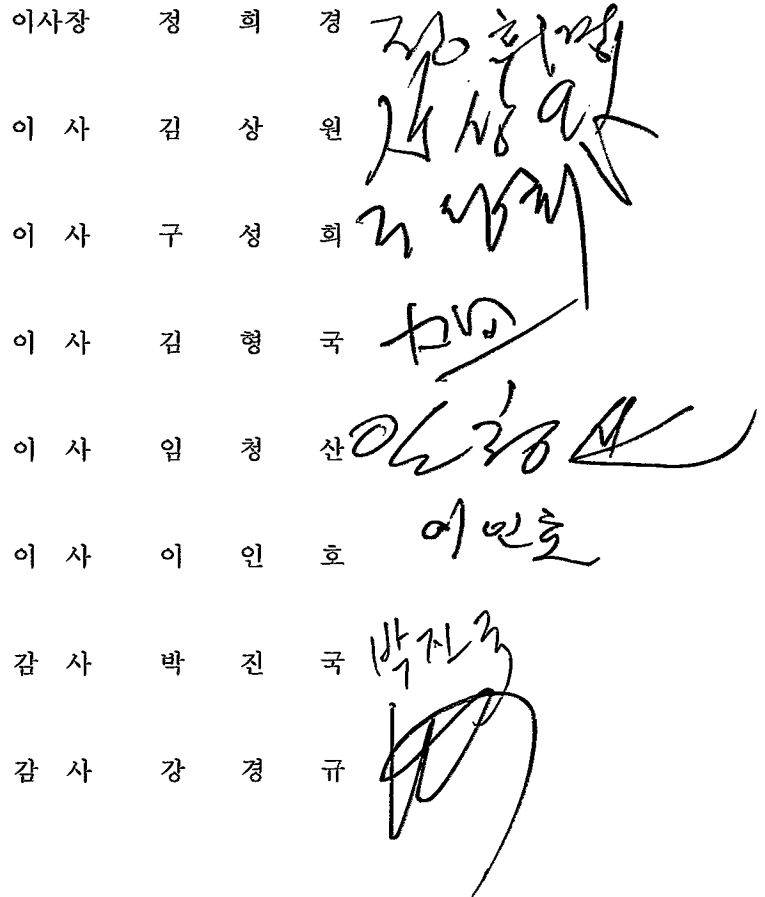 이사장 정 희 경 정희경
이 사 김 상 원 김상원
이 사 구 성 회 구성회
이 사 김 형 국
이 사 임 청 산 임청산
이 사 이 인 호 이인호
감 사 박 진 국 박진국
감 사 강 경 규